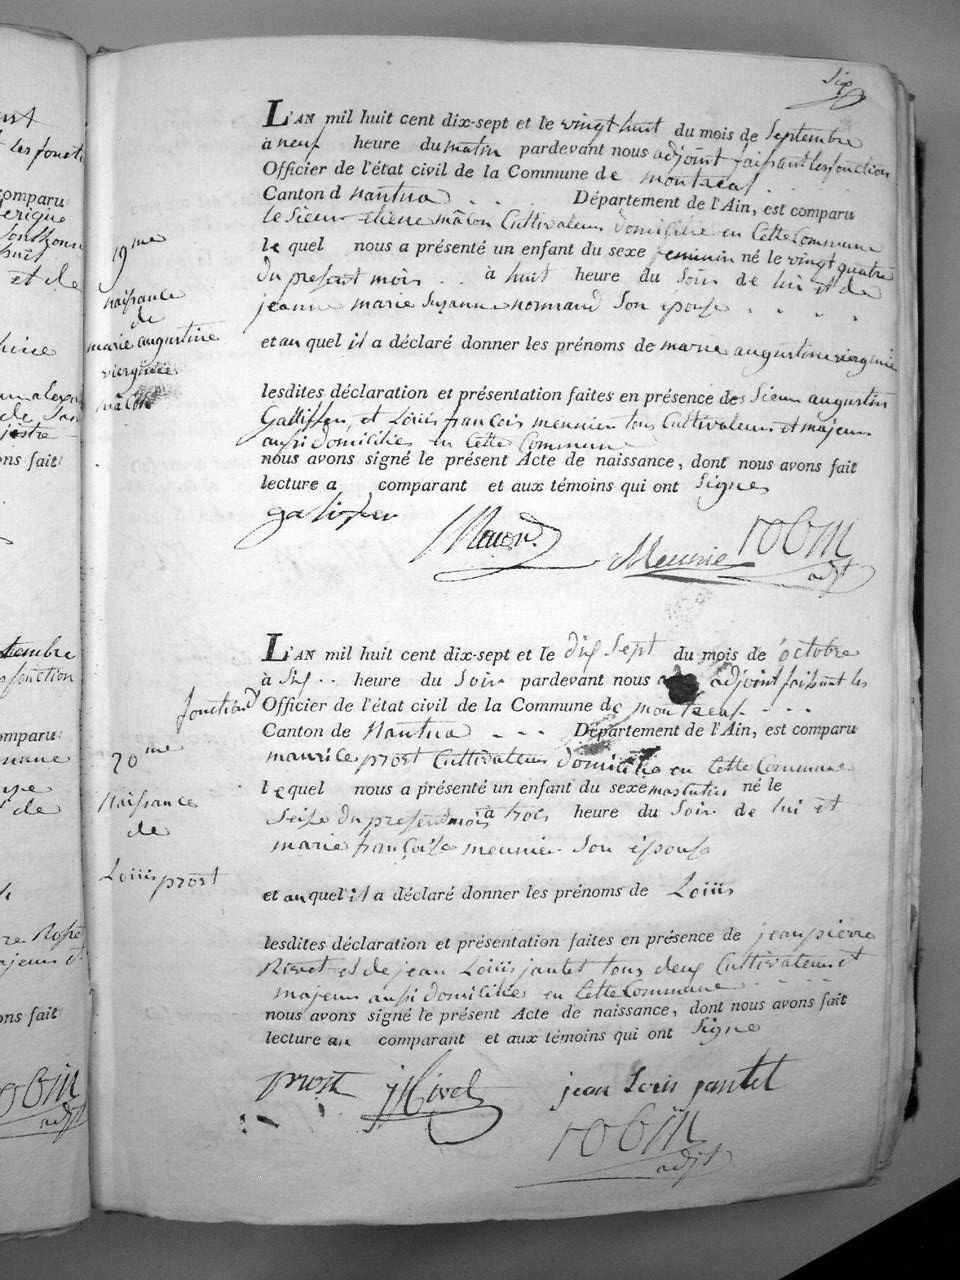 Six
L'AN mil huit cent dix-sept et le vingt huit du mois de Septembre
à neuf heure du matin pardevant nous adjoint faisant les fonction
Officier de l'état civil de la Commune de montreal
Canton d nantua Département de l'Ain, est comparu
le Sieur etiene mâcon Cultivateur domicilié en Cette Commune
le quel nous a présenté un enfant du sexe feminin né le vingt quatre
du present mois à huit heure du Soir de lui et de
jeanne marie Suzanne normand Son epouse
et au quel il a déclaré donner les prénoms de marie augustine
lesdites déclaration et présentation faites en présence des Sieur augustin
et Loüis francois meunier tous Cultivateurs et majeurs
aussi domiciliés en Cette Commune
nous avons signé le présent Acte de naissance, dont nous avons fait
lecture a comparant et aux témoins qui ont Signes
Macon
Meunie
robin
adjt
19me
naissance
de
marie augustine
mâcon
L'AN mil huit cent dix-sept et le dix Sept du mois de octobre
à Six heure du Soir pardevant nous adjoint faisant les
fonction d
Officier de l'état civil de la Commune de montreal
Canton de Nantua Département de l'Ain, est comparu
maurice prost Cultivateur domicilié en Cette Commune
le quel nous a présenté un enfant du sexe masculin né le
Seise du present mois à trois heure du Soir de lui et
marie françoise meunier Son epouse
et au quel il a déclaré donner les prénoms de Loüis
lesdites déclaration et présentation faites en présence de jean pierre
et de jean Loüis jantet tous deux Cultivateurs et
majeur aussi domiciliés en Cette Commune
nous avons signé le présent Acte de naissance, dont nous avons fait
lecture au comparant et aux témoins qui ont Signe
prost
jean Loüis jantet
robin
adjt
20me
Naissance
de
Loüis prost